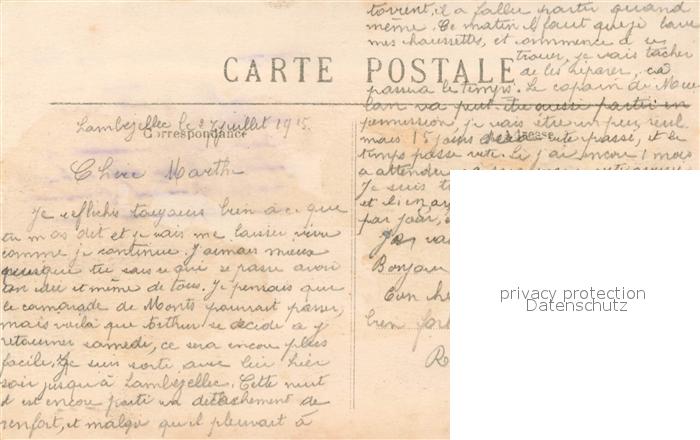 CARTE POSTALE
Correspondance
Adresse
Lambezellec le 27 Juillet 1915.
Chère Marthe
Je réfléchis toujours bien à ce que
tu m'as dit et je vais me laisser vivre
comme je continue. J'aimais mieux
puisque tu sais ce qui se passe avoir
un idée et même de tous. Je pensais que
le camarade de Monts pourrait passer,
mais voilà que Arthur se décide a y
retourner samedi, ce sera encore plus
facile. Je suis sorti avec lui hier
soir jusqu'à Lambezellec. Cette nuit
il est encore parti un détachement de
renfort, et malgré qu'il pleuvait à
torrent, il a fallu partir quand
même. Ce matin il faut que je lave
mes chaussettes, et commence à se
trouer, je vais tâcher
de les réparer, ça
passera le temps. Le copain de
va peut être aussi partir en
permission, je vais être un peu seul
mais 15 jours vite passé, et le
temps passe vite. Si j'ai encore 1 mois
a attendre
Je suis
et
par jour,
Je va
Bonjour
Ton
bien for
R
privacy protection
Datenschutz